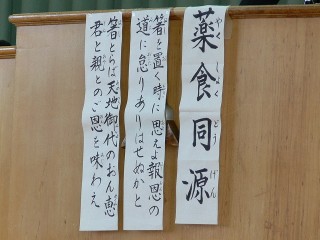 薬食同源
やくしょくどうげん
箸を置く時に思えよ報恩の
道に怠りありはせぬかと
箸とらば天地御代のおん恵
君と親とのご恩を味わえ